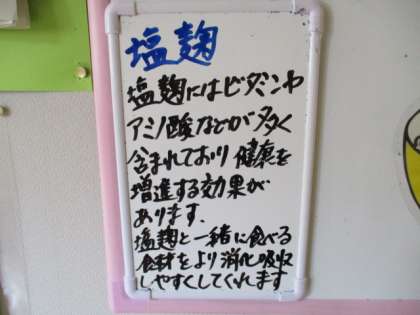 塩麹
塩麹にはビタミンや
アミノ酸などが多く
含まれており健康を
増進する効果が
あります.
塩麹と一緒に食べる
食材をより消化吸収
しやすくしてくれます